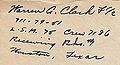 Warren A. Clark F1/c
711-79-81
L.S.M. 78 Crew 7136
Receiving Bks.
Houston, Texas